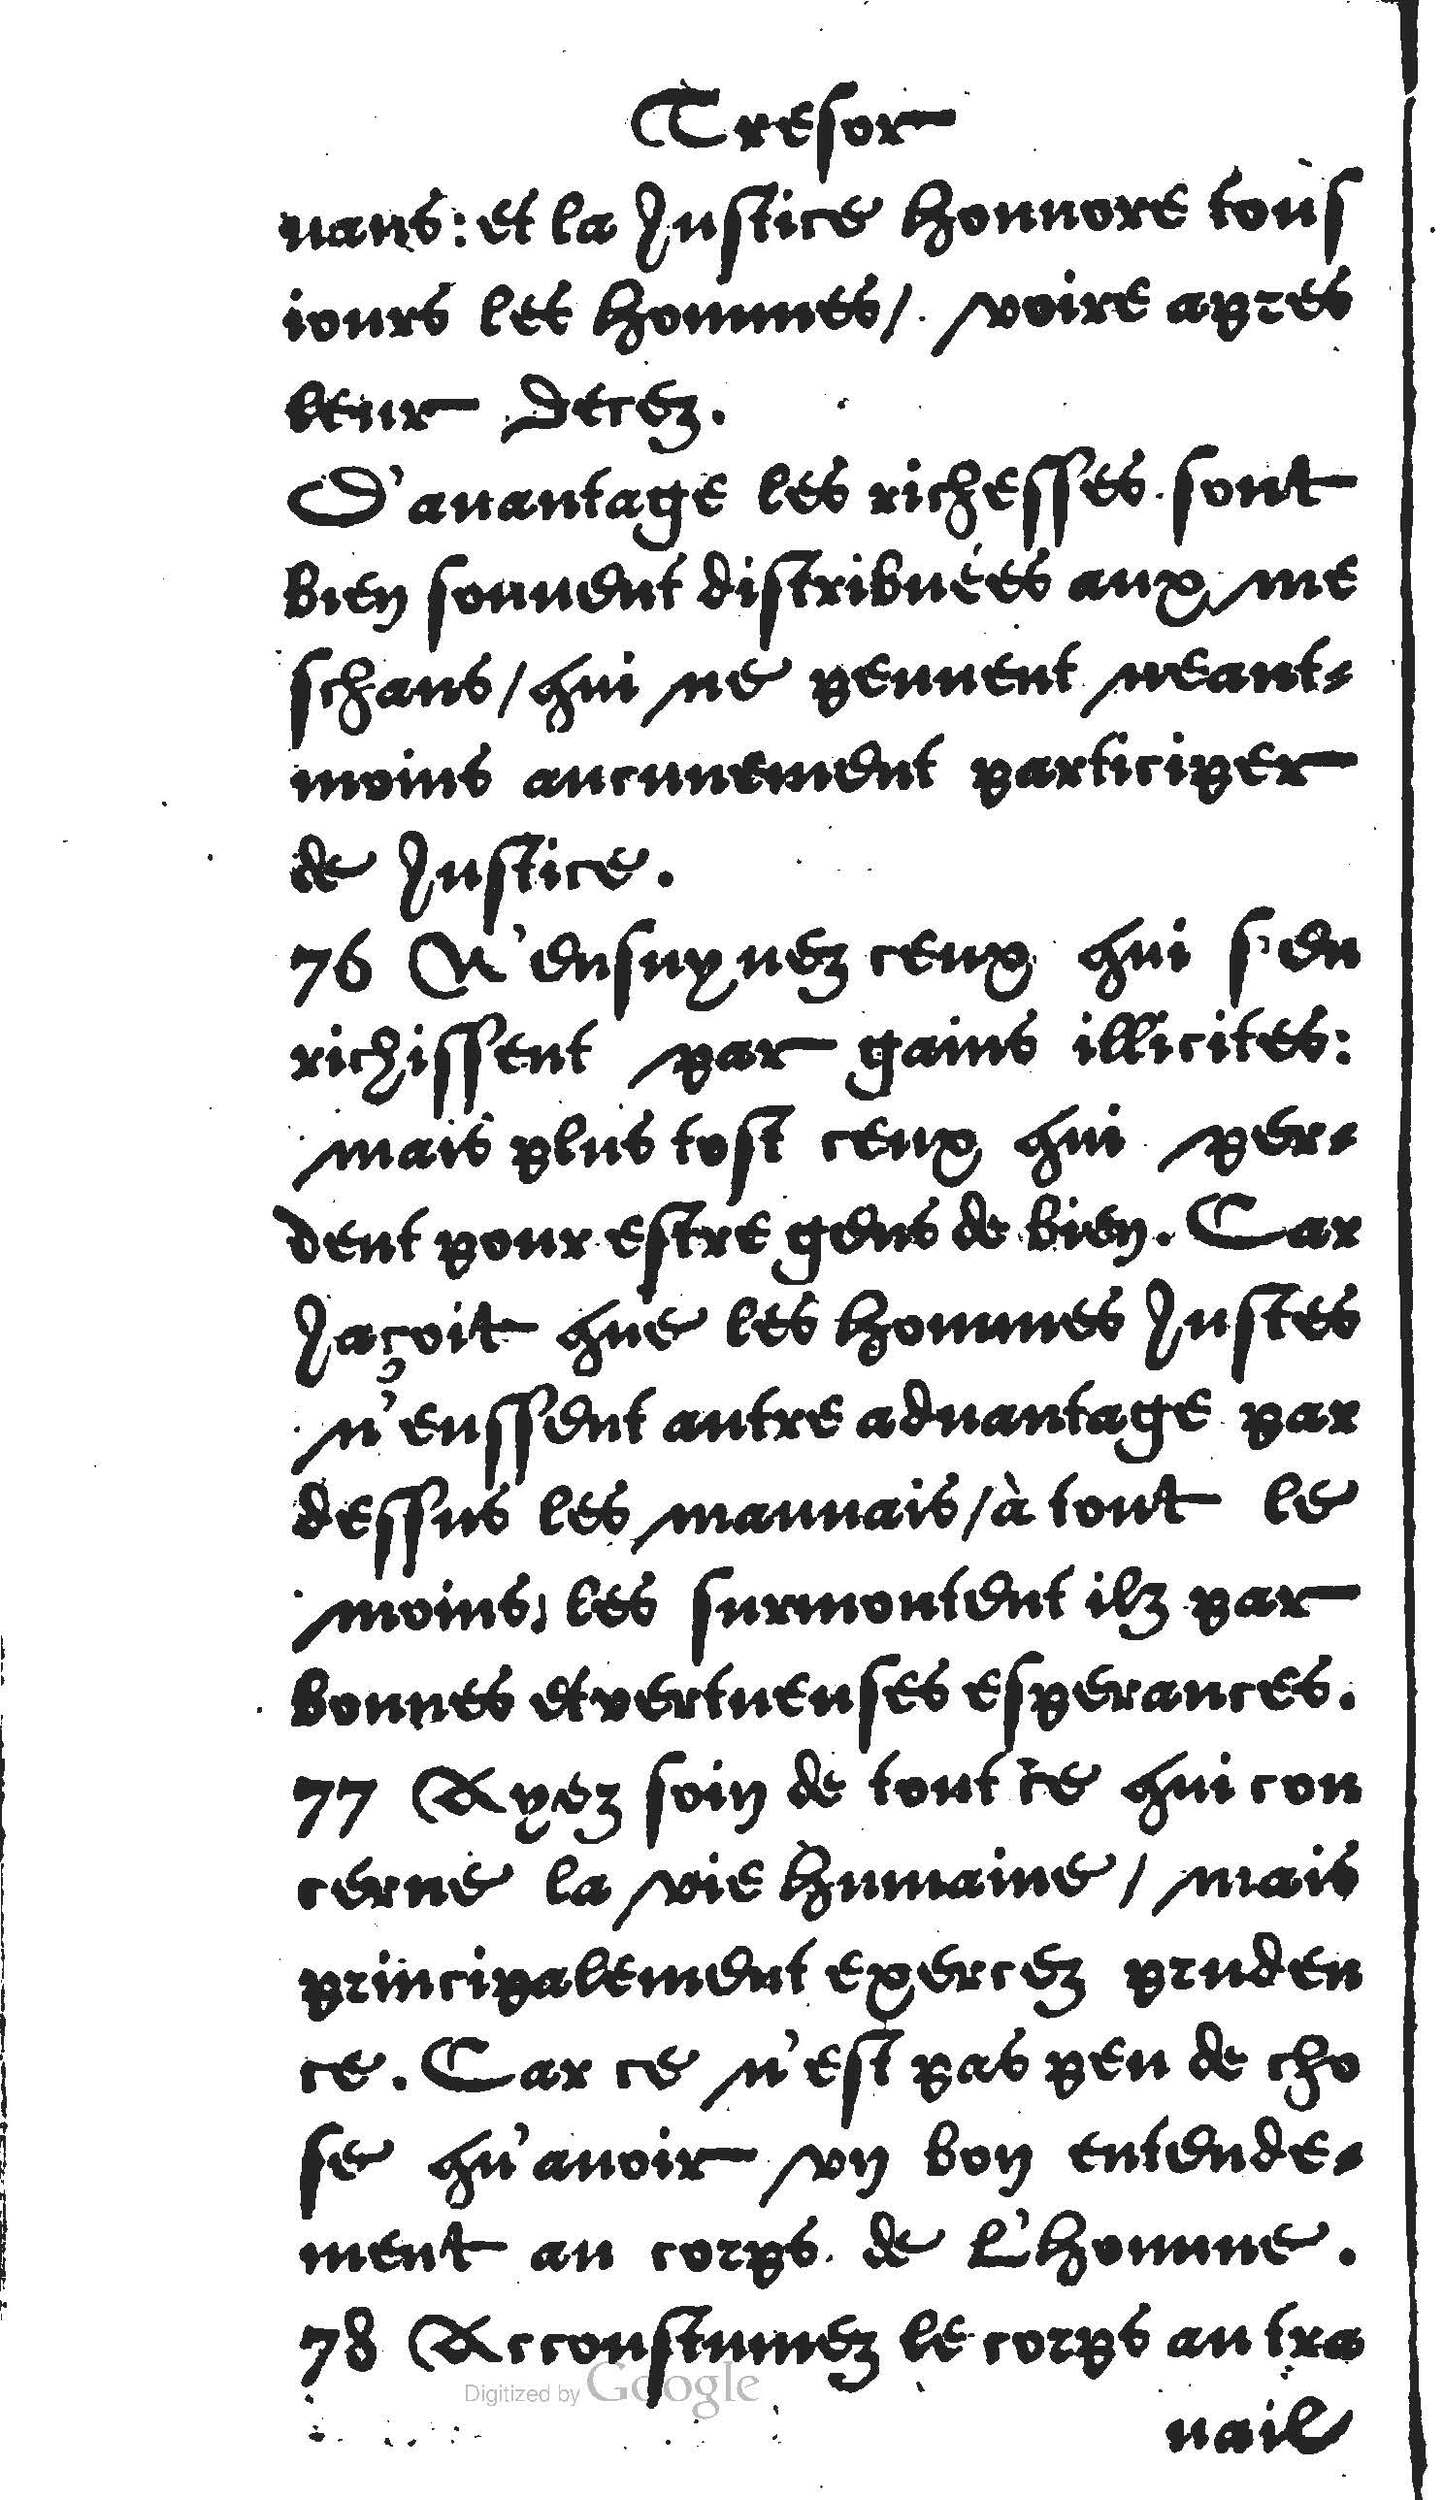 Tresor
uans: et la Justice honnore tous
iours les hommes/. voire apres
leur decez.
D'auantage les richesses sont
bien souuent distribuées aux me
schans/ qui ne peuuent neant-
moins aucunement participer
de Justice.
76 N'ensuyuez ceux qui s'en
richissent par gains illicites:
mais plus tost ceux qui per-
dent pour estre gens de bien. Car
Jaçoit que les hommes Justes
n'eussent autre aduantage par
dessus les mauuais/à tout le
moins, les surmontent ilz par
bonnes et vertueuses esperances.
77 Ayez soin de tout ce qui con
cerne la vie humaine/ mais
principalement exercez pruden
ce. Car ce n'est pas peu de cho
se qu'auoir vn bon entende-
ment au corps de L'homme.
78 Accoustumez le corps au tra
Digitized by Google
uail